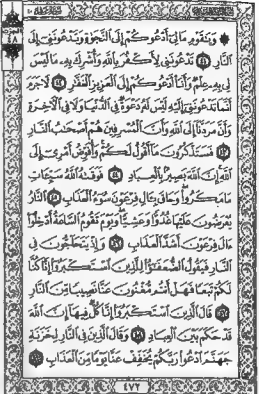 ۞ وَيَٰقَوْمِ مَا لِىٓ أَدْعُوكُمْ إِلَى ٱلنَّجَوٰةِ وَتَدْعُونَنِىٓ إِلَى
ٱلنَّارِ ٤١ تَدْعُونَنِى لِأَكْفُرَ بِٱللَّهِ وَأُشْرِكَ بِهِۦ مَا لَيْسَ
لِى بِهِۦ عِلْمٌ وَأَنَا۠ أَدْعُوكُمْ إِلَى ٱلْعَزِيزِ ٱلْغَفَّٰرِ ٤٢ لَا جَرَمَ
أَنَّمَا تَدْعُونَنِىٓ إِلَيْهِ لَيْسَ لَهُۥ دَعْوَةٌ فِى ٱلدُّنْيَا وَلَا فِى ٱلْءَاخِرَةِ
وَأَنَّ مَرَدَّنَآ إِلَى ٱللَّهِ وَأَنَّ ٱلْمُسْرِفِينَ هُمْ أَصْحَٰبُ ٱلنَّارِ
٤٣ فَسَتَذْكُرُونَ مَآ أَقُولُ لَكُمْ وَأُفَوِّضُ أَمْرِىٓ إِلَى
ٱللَّهِ إِنَّ ٱللَّهَ بَصِيرٌۢ بِٱلْعِبَادِ ٤٤ فَوَقَىٰهُ ٱللَّهُ سَيِّـَٔاتِ
مَا مَكَرُوا۟ وَحَاقَ بِـَٔالِ فِرْعَوْنَ سُوٓءُ ٱلْعَذَابِ ٤٥ ٱلنَّارُ
يُعْرَضُونَ عَلَيْهَا غُدُوًّا وَعَشِيًّا وَيَوْمَ تَقُومُ ٱلسَّاعَةُ أَدْخِلُوٓا۟
ءَالَ فِرْعَوْنَ أَشَدَّ ٱلْعَذَابِ ٤٦ وَإِذْ يَتَحَآجُّونَ فِى
ٱلنَّارِ فَيَقُولُ ٱلضُّعَفَٰٓؤُا۟ لِلَّذِينَ ٱسْتَكْبَرُوٓا۟ إِنَّا كُنَّا
لَكُمْ تَبَعًا فَهَلْ أَنتُم مُّغْنُونَ عَنَّا نَصِيبًا مِّنَ ٱلنَّارِ
٤٧ قَالَ ٱلَّذِينَ ٱسْتَكْبَرُوٓا۟ إِنَّا كُلٌّ فِيهَآ إِنَّ ٱللَّهَ
قَدْ حَكَمَ بَيْنَ ٱلْعِبَادِ ٤٨ وَقَالَ ٱلَّذِينَ فِى ٱلنَّارِ لِخَزَنَةِ
جَهَنَّمَ ٱدْعُوا۟ رَبَّكُمْ يُخَفِّفْ عَنَّا يَوْمًا مِّنَ ٱلْعَذَابِ ٤٩
٤٧٢